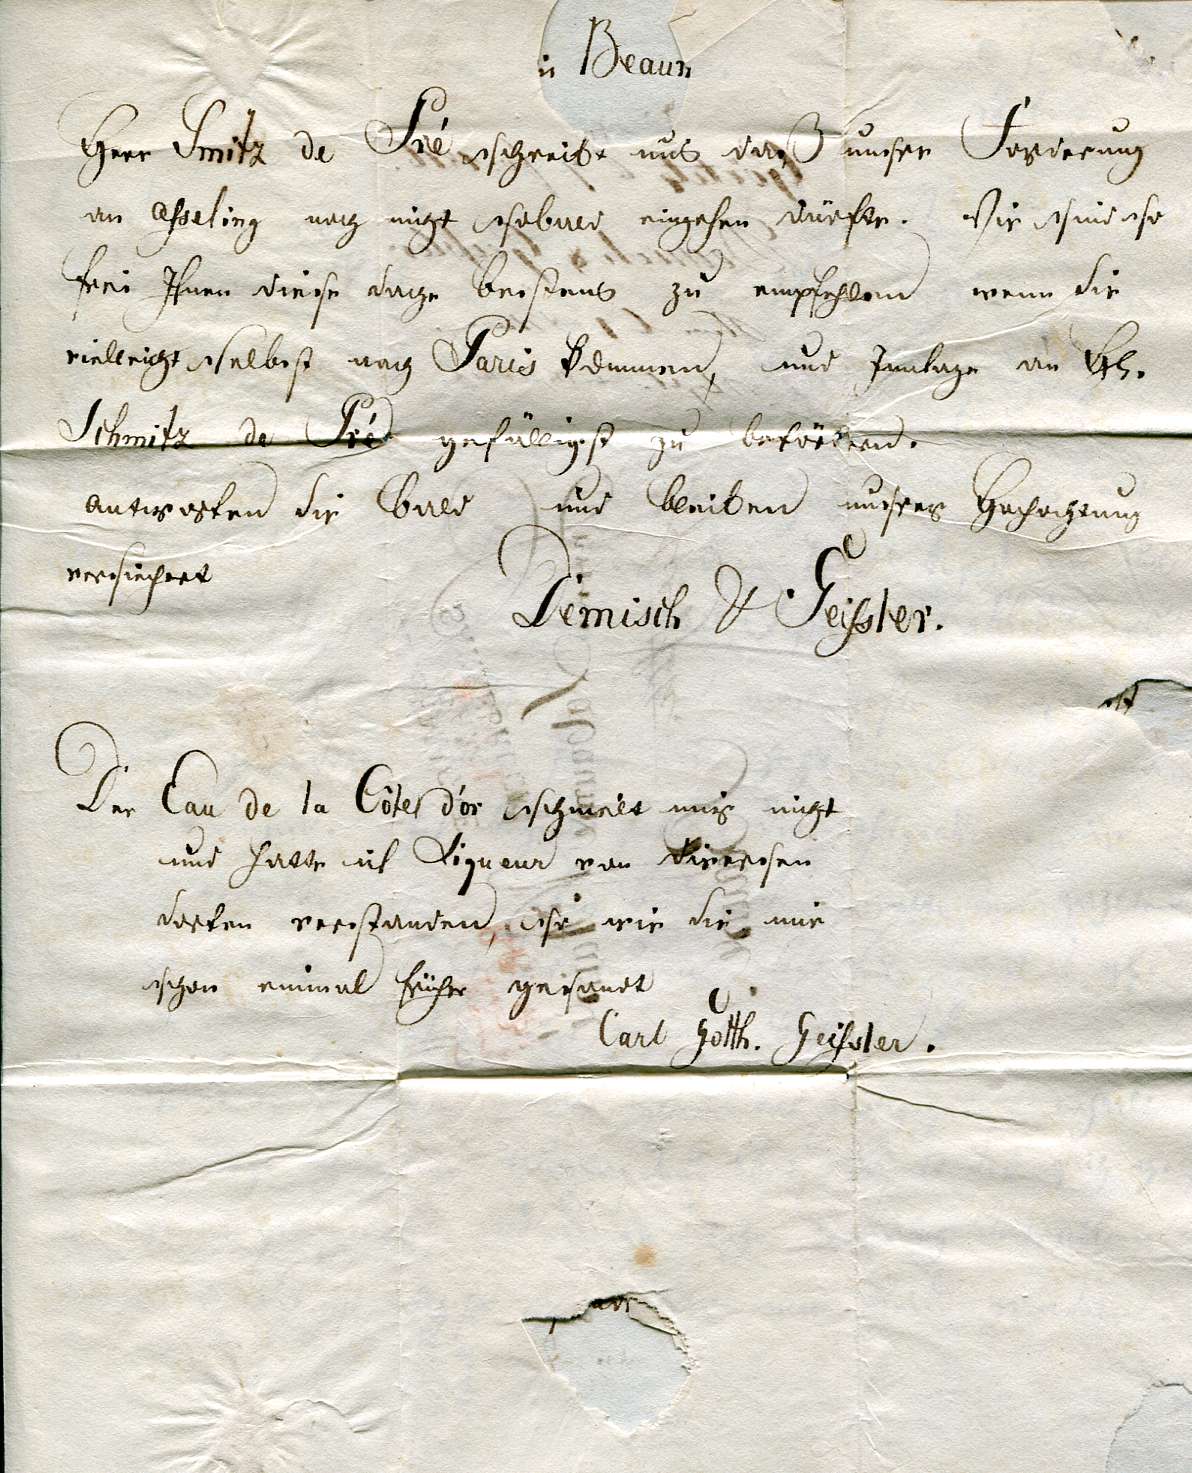 in Beaun
Herr Smitz de Pré schreibt uns daß unser Forderung
an Asseling noch nicht sobald eingehen dürfte. Wir sind so
frei Ihnen diese Sache bestens zu empfehlen wenn Sie
vielleicht selbst nach Paris kommen, und Innlage an
Schmitz de Pré gefälligst zu befördern.
Antworten Sie bald und bleiben unserer Hochachtung
versichert
Demisch & Geissler.
Der Eau de la Côtes d'or schmekt mir nicht
und hatte ich Liqueur von diversen
Sorten verstanden, so wie Sie mir
schon einmal früher gesandt
Carl Gotth. Geissler.